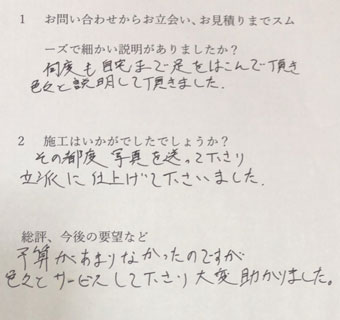 1 お問い合わせからお立会い、お見積りまでスム
ーズで細かい説明がありましたか？
何度も自宅まで足をはこんで頂き
色々と説明して頂きました.
2 施工はいかがでしたでしょうか？
その都度写真を送って下さり
立派に仕上げて下さいました.
総評、今後の要望など
予算があまりなかったのですが
色々とサービスして下さり大変助かりました。